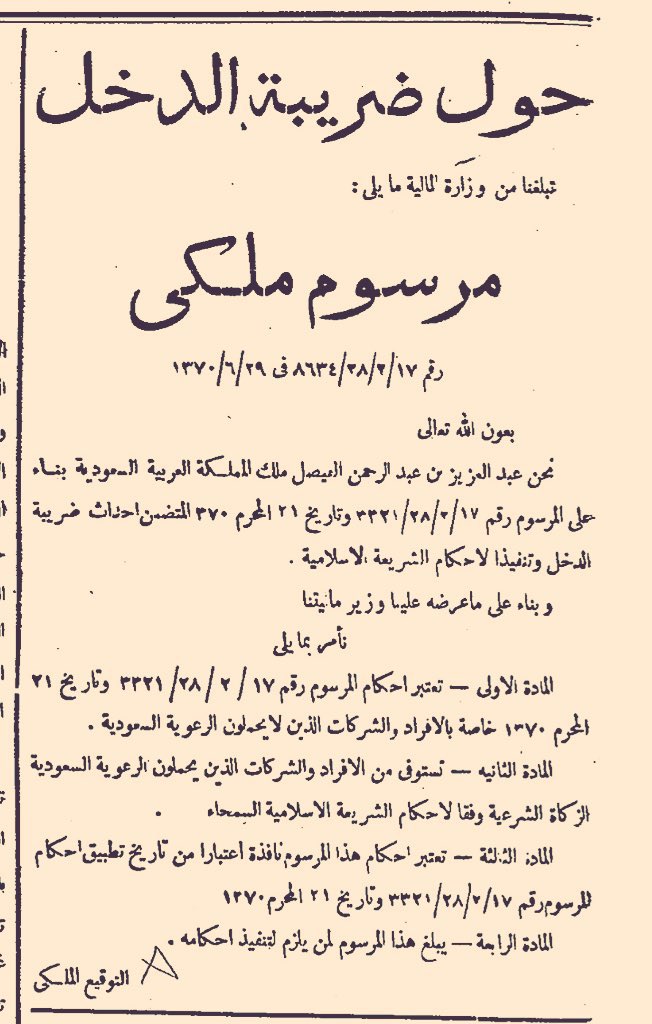 حول ضريبة الدخل
تبلغنا من وزارة المالية ما يلي :
مرسوم ملكي
رقم ٨٦٣٤/٢٨/٢/١٧ في ١٣٧٠/٦/٢٩
بعون الله تعالى
نحن عبد العزيز بن عبد الرحمن الفيصل ملك المملكة العربية السعودية بناء
على المرسوم رقم ٣٣٢١/٢٨/٢/١٧ وتاريخ ٢١ المحرم ٣٧٠ المتضمن احداث ضريبة
الدخل وتنفيذا لاحكام الشريعة الاسلامية .
وبناء على ماعرضه علينا وزير ماليتنا
نأمر بما يلي
المادة الاولى — تعتبر احكام المرسوم رقم ١٧ / ٢ / ٢٨/ ٣٣٢١ وتاريخ ٢١
المحرم ١٣٧٠ خاصة بالافراد والشركات الذين لايحملون الرعوية السعودية .
المادة الثانيه — تستوفى من الافراد والشركات الذين يحملون الرعوية السعودية
الزكاة الشرعية وفقا لاحكام الشريعة الاسلامية السمحاء .
المادة الثالثة — تعتبر احكام هذا المرسوم نافذة اعتبارا من تاريخ تطبيق احكام
المرسوم رقم ٣٣٢١/٢٨/٢/١٧ وتاريخ ٢١ المحرم ١٣٧٠
المادة الرابعة — يبلغ هذا المرسوم لمن يلزم لتنفيذ احكامه .
التوقيع الملكي